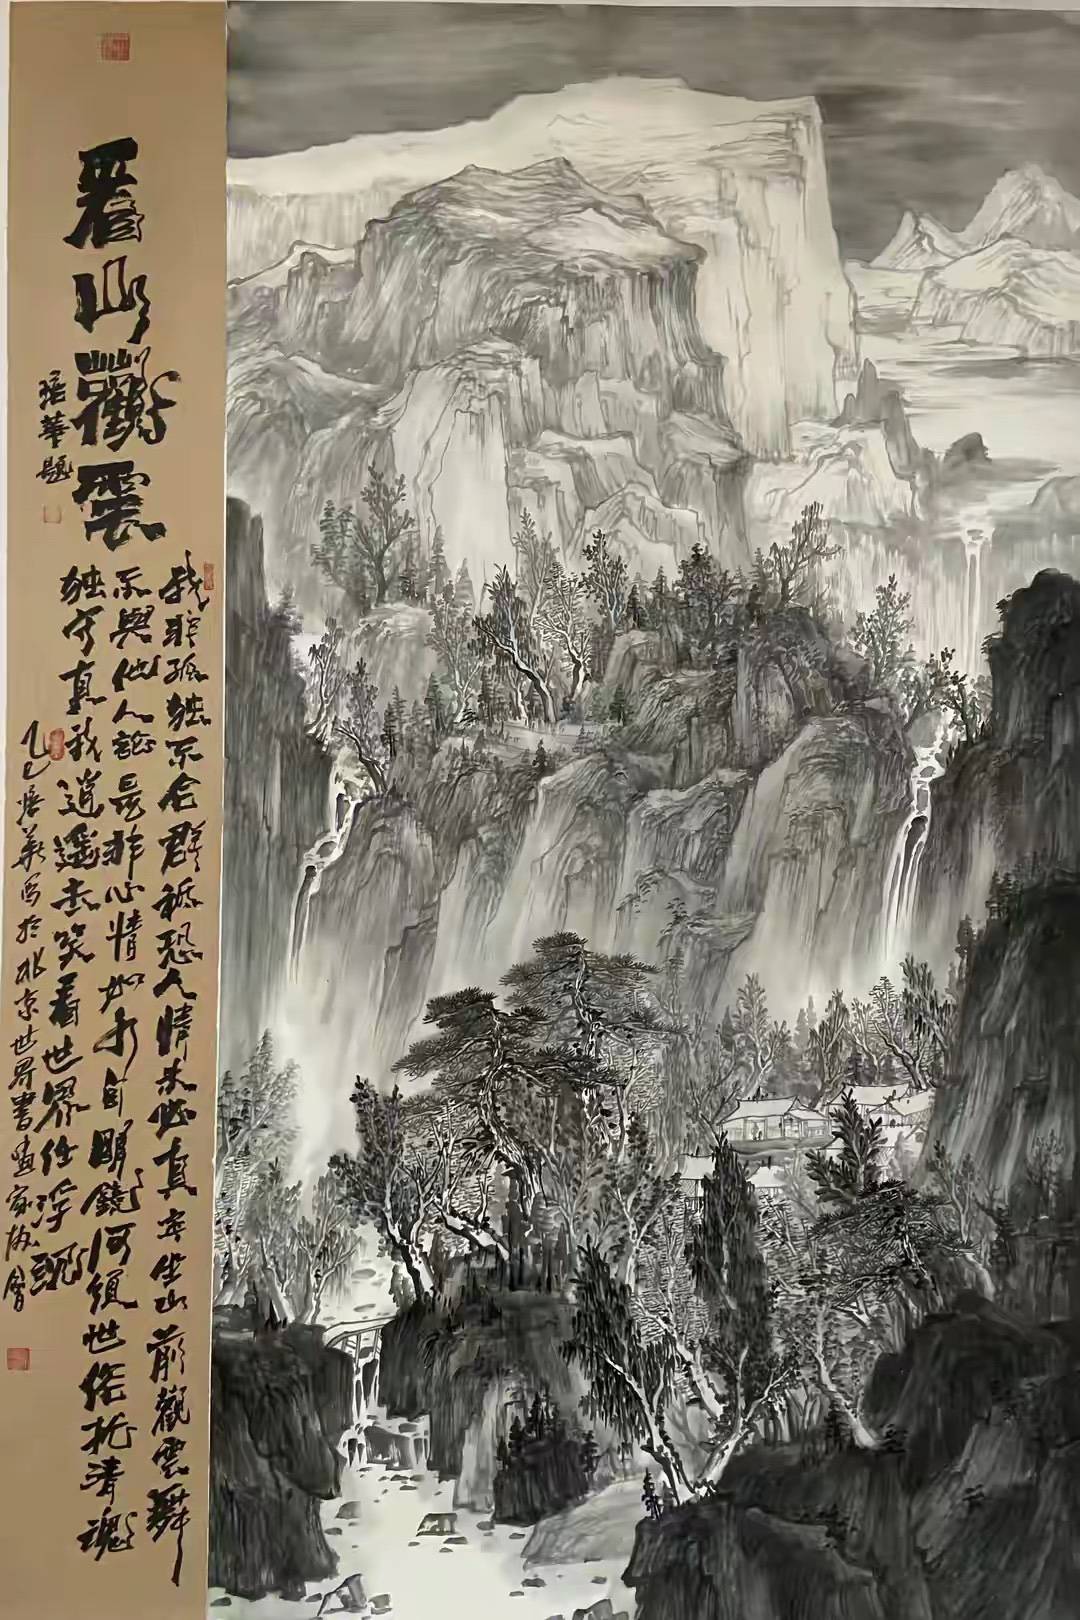 看山觀雲
培華題
我非孤独不合群祗恐人情未必真寧坐山前觀雲舞
不與他人論是非心情如水自明鏡何須世俗扰清魂
独守真我逍遥去笑看世界任浮
乙巳培華写於北京世界書画家協會